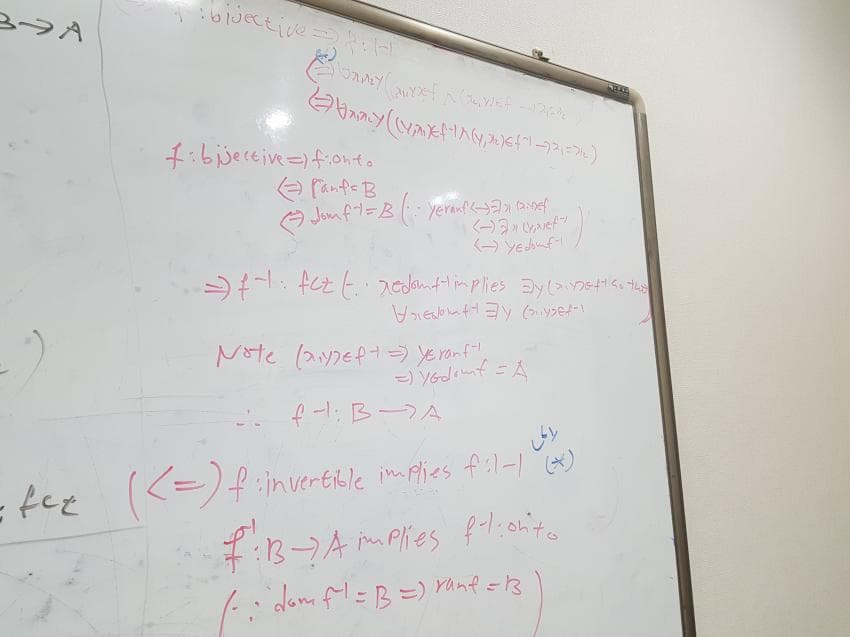 B → A
f : bijective => f : 1-1
(*)
<=> ∀x₁x₂y((x₁,y)∈f ∧ (x₂,y)∈f → x₁=x₂
<=> ∀x₁x₂y((y,x₁)∈f⁻¹ ∧ (y,x₂)∈f⁻¹ → x₁=x₂)
f : bijective => f : onto
<=> ranf = B
<=> domf⁻¹ = B (∵ y∈ranf <-> ∃x (x,y)∈f
<-> ∃x (y,x)∈f⁻¹
<-> y∈domf⁻¹)
=> f⁻¹ : fct (∵ x∈domf⁻¹ implies ∃y (x,y)∈f⁻¹ so that
∀x∈domf⁻¹ ∃y (x,y)∈f⁻¹
Note (x,y)∈f⁻¹ => y∈ranf⁻¹
=> y∈domf = A
∴ f⁻¹ : B → A
by
(<=) f : invertible implies f : 1-1 (*)
: fct
f⁻¹ : B → A implies f⁻¹ : onto
(∵ domf⁻¹ = B => ranf = B)